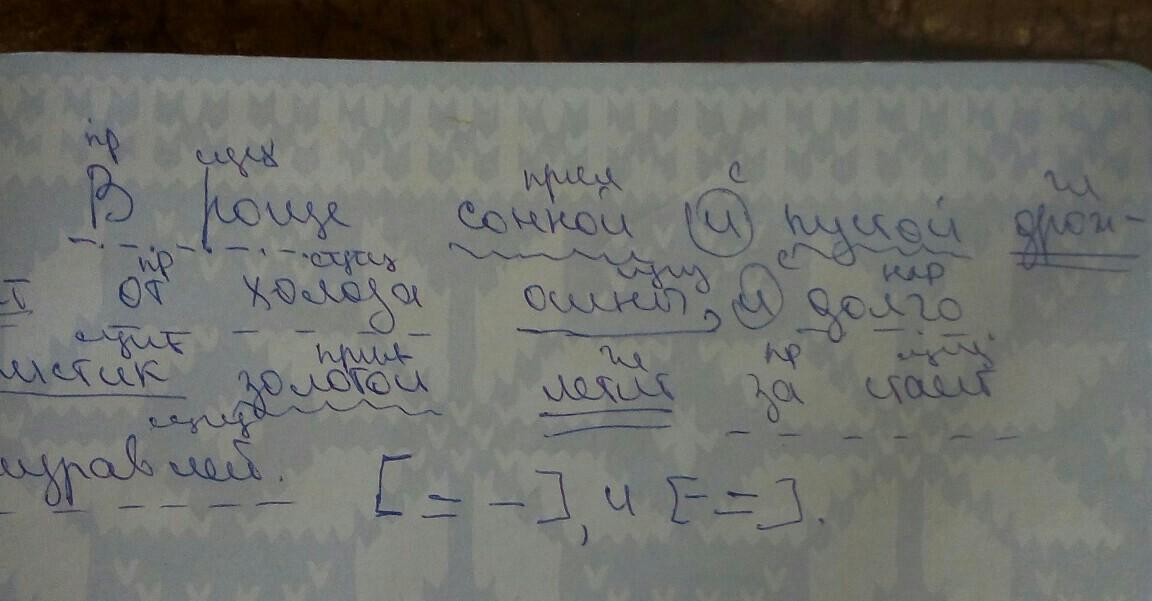 пр сущ прил с гл
В роще сонной и пустой дрож-
пр сущ сущ с нар
ит от холода осины, и долго
сущ прил гл пр сущ
листик золотой летит за стаей
сущ
журавлей. [= -], и [- =].